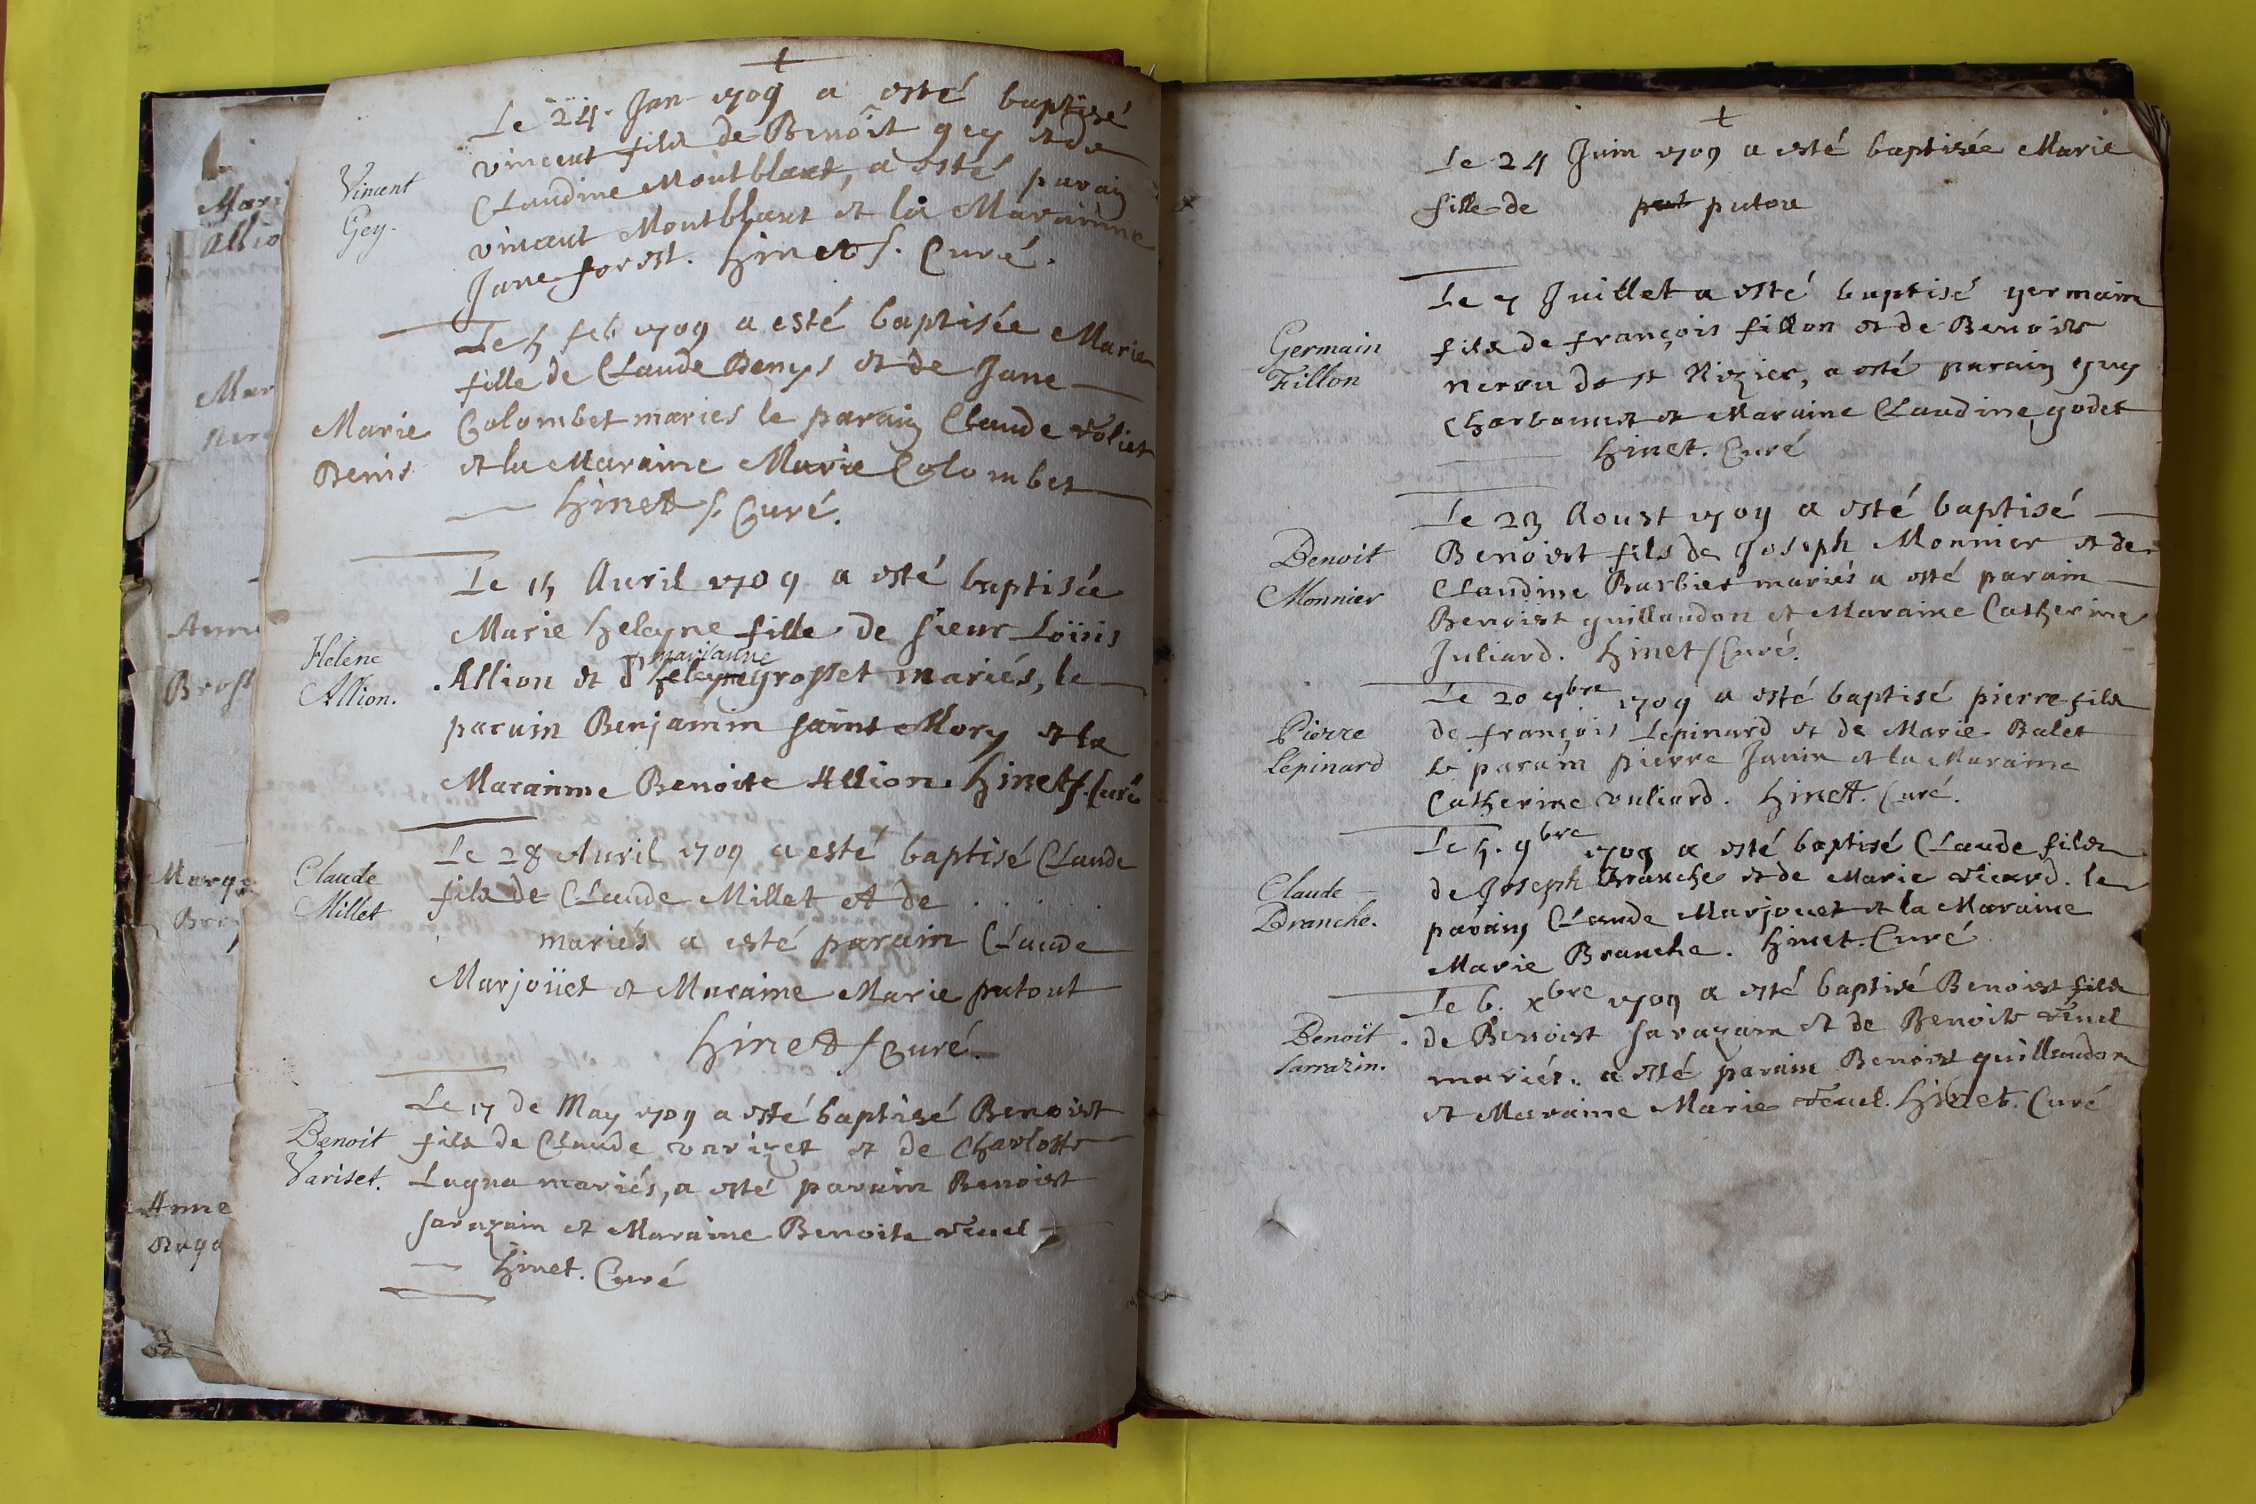 Mari
Allio
Mar
Anne
Brosf
Marg
Anne
+
Le 24. Jan 1709 a esté baptisé
vincent fils de Benoît gey et de
Claudine Montblant, a esté parain
vincent Montblant et la Marainne
Jane forest. hinet s. Curé.
Vincent
Gey.
Le 5 feb 1709 a esté baptisée Marie
fille de Claude Denys et de Jane
Colombet mariés le parain Claude voliet
et la Maraine Marie Colombet
hinet s. Curé.
Marie
Denis
Le 15 Auril 1709 a esté baptisée
Marie heleyne fille de sieur Loüis
marianne
Allion et d heleyne grosset mariés, le
parain Benjamin saint Mory et la
Marainne Benoite Allion. hinet s. Curé
Hélène
Allion.
Le 28 Auril 1709 a esté baptisé Claude
fils de Claude Millet et de . . . . .
mariés a esté parain Claude
Marjoüet et Maraine Marie putout
hinet s Curé.
Claude
Millet
Le 17 de May 1709 a esté baptisé Benoist
fils de Claude varizet et de Charlotte
Lugna mariés, a esté parain Benoist
sarazain et Maraine Benoite veuel
hinet. Curé
Benoit
Variset.
+
Le 24 Juin 1709 a esté baptisée Marie
fille de put putou
Le 7 Juillet a esté baptisé germain
fils de françois fillon et de Benoite
nerou de st Nizier, a esté parain guy
Charbonnet et Maraine Claudine godet
hinet. Curé
Germain
Fillon
Le 23 Aoust 1709 a esté baptisé
Benoist fils de Joseph Monnier et de
Claudine Barbier mariés a esté parain
Benoist guillaudon et Maraine Catherine
Juliard. hinet s Curé.
Benoit
Monnier
Le 20 7bre 1709 a esté baptisé pierre fils
de françois Lepinard et de Marie Balet
le parain pierre Janin et la Maraine
Catherine vuliard. hinet. Curé.
Pierre
Lepinard
Le 5. 9bre 1709 a esté baptisé Claude fils
de Joseph Branche et de Marie vicard. le
parain Claude Marjouet et la Maraine
Marie Branche. hinet. Curé
Claude
Branche.
Le 6. xbre 1709 a esté baptisé Benoist fils
de Benoist sarazain et de Benoite veuel
mariés. a esté parain Benoist guillaudon
et Maraine Marie veuel. hinet. Curé
Benoit
sarrazin.